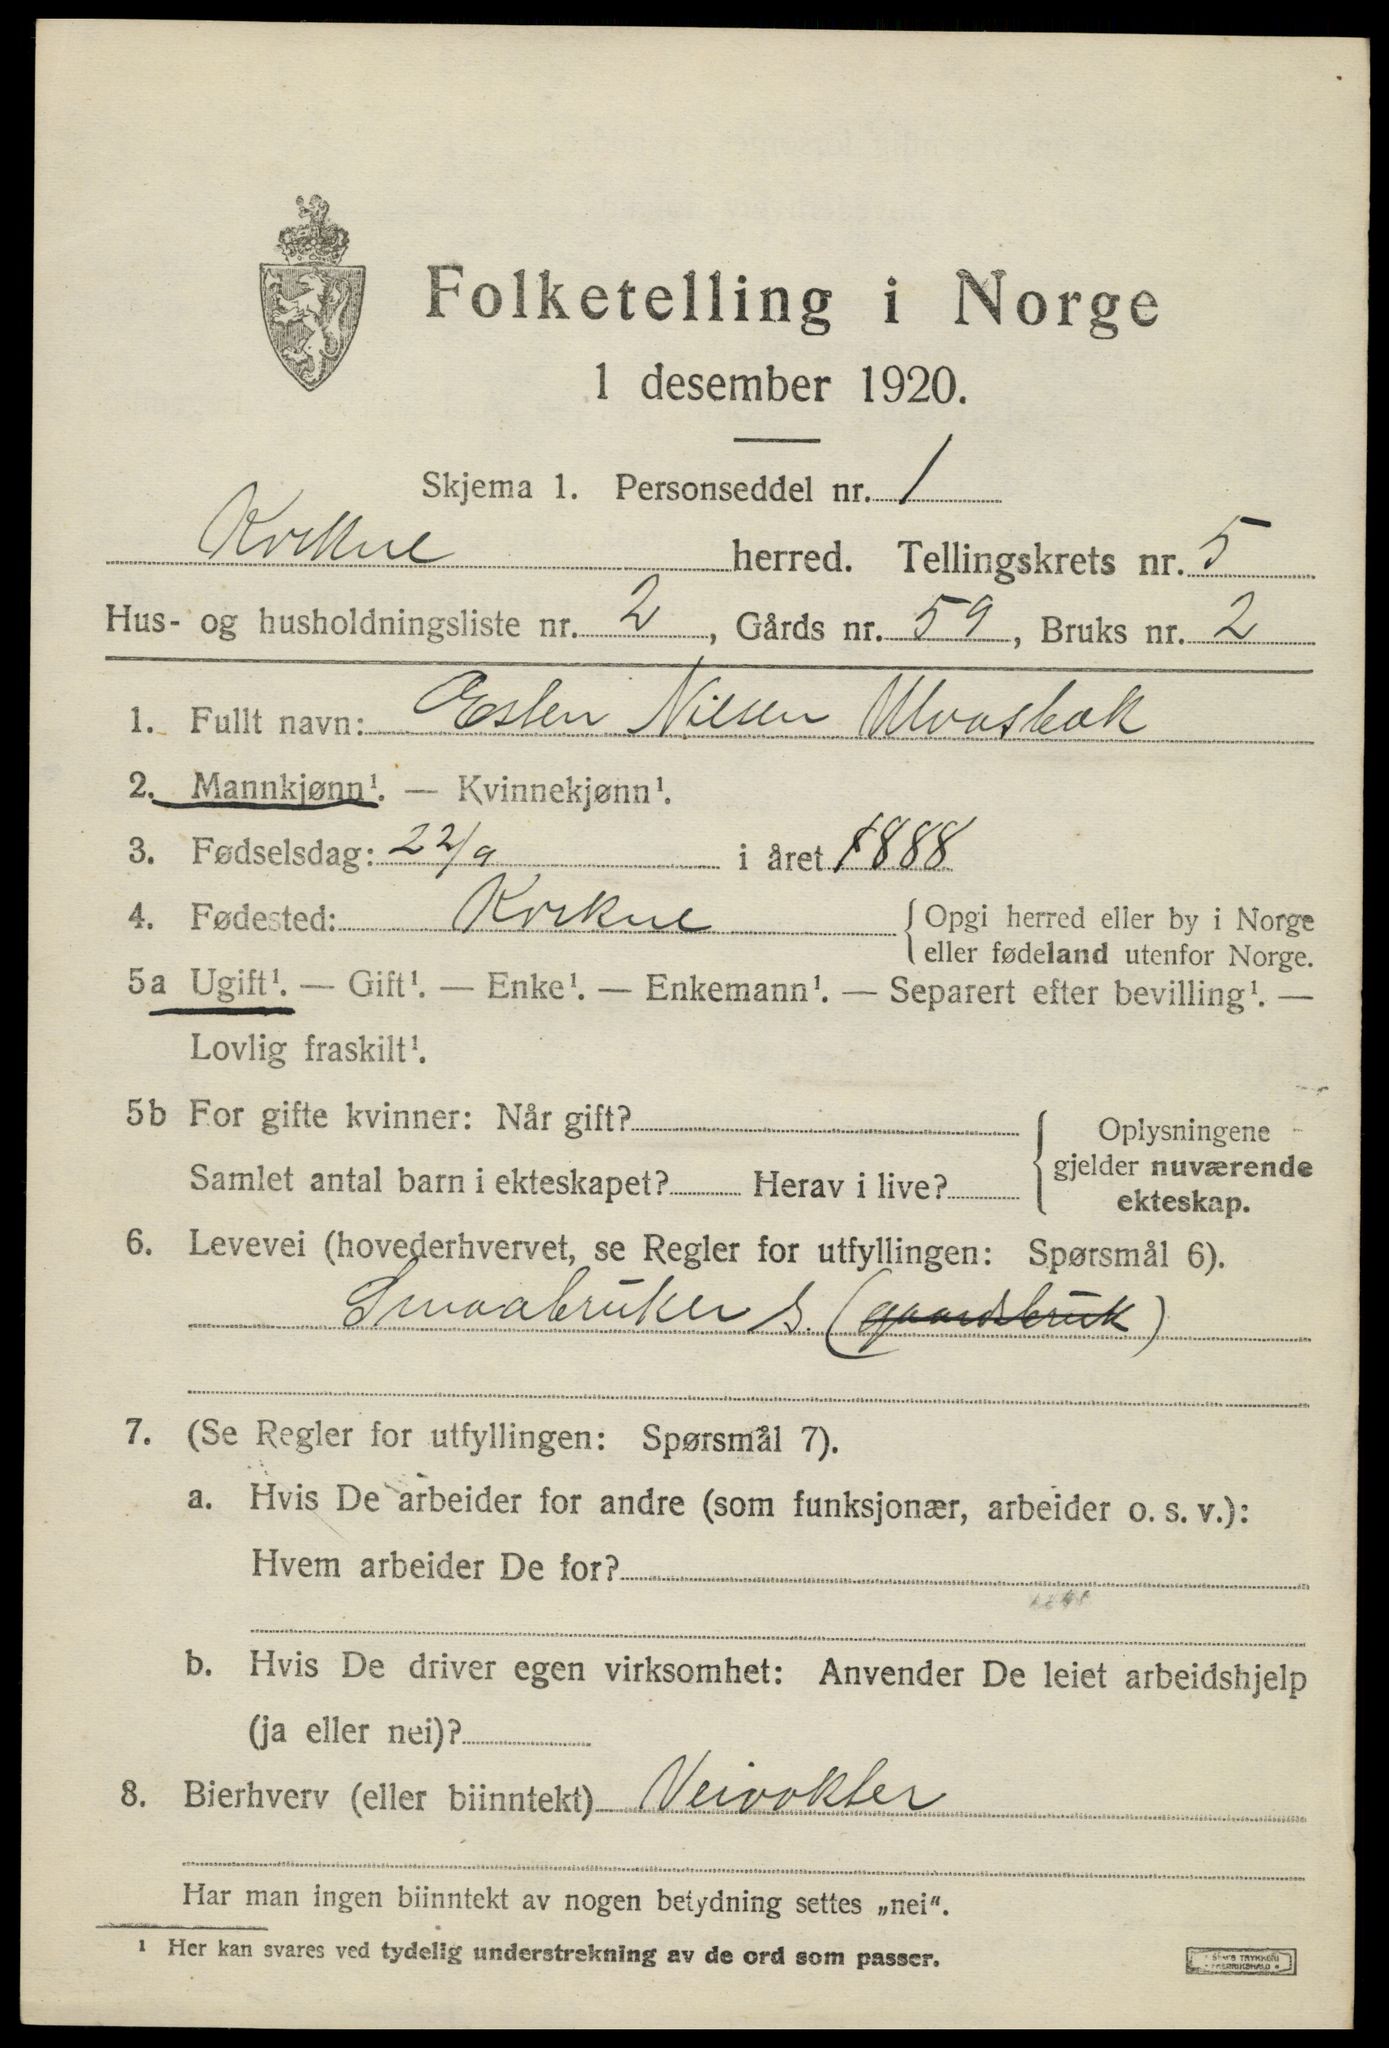 Folketelling i Norge
1 desember 1920.
Skjema 1. Personseddel nr. 1
Kvikne herred. Tellingskrets nr. 5
Hus- og husholdningsliste nr. 2, Gårds nr. 59, Bruks nr. 2
1. Fullt navn: Esten Nilsen Ulvasbak
2. Mannkjønn¹. — Kvinnekjønn¹.
3. Fødselsdag: 22/9 i året 1888
4. Fødested: Kvikne { Opgi herred eller by i Norge
eller fødeland utenfor Norge.
5a Ugift¹. — Gift¹. — Enke¹. — Enkemann¹. — Separert efter bevilling¹. —
Lovlig fraskilt¹.
5b For gifte kvinner: Når gift?
Samlet antal barn i ekteskapet? Herav i live?
{ Oplysningene
gjelder nuværende
ekteskap.
6. Levevei (hovederhvervet, se Regler for utfyllingen: Spørsmål 6).
Smaabruker S. (gaardsbruk)
7. (Se Regler for utfyllingen: Spørsmål 7).
a. Hvis De arbeider for andre (som funksjonær, arbeider o. s. v.):
Hvem arbeider De for?
b. Hvis De driver egen virksomhet: Anvender De leiet arbeidshjelp
(ja eller nei)?
8. Bierhverv (eller biinntekt) Veivokter
Har man ingen biinntekt av nogen betydning settes „nei“.
¹ Her kan svares ved tydelig understrekning av de ord som passer.
TRYKKERI
FREDRIKSHALD